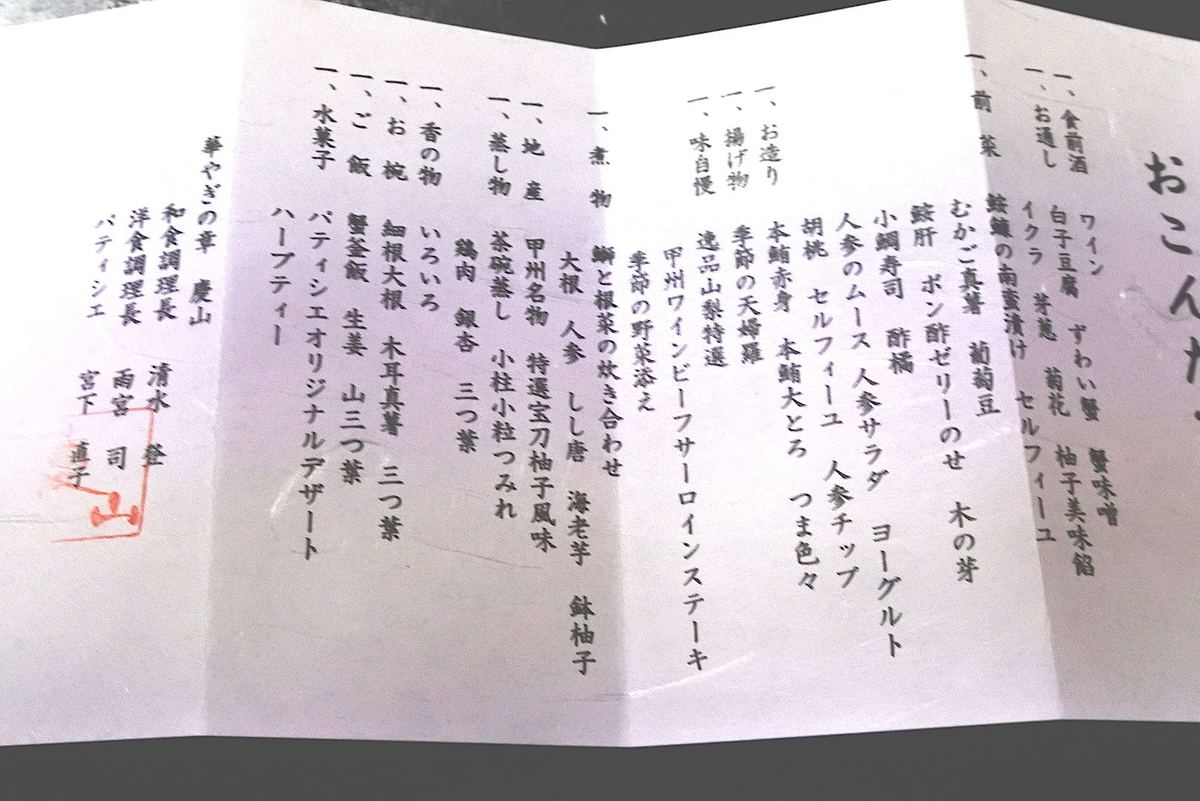 おこん
一、食前酒 ワイン
一、お通し 白子豆腐 ずわい蟹 蟹味噌
イクラ 芽葱 菊花 柚子美味餡
一、前菜 鮟鱇の南蛮漬け セルフィーユ
むかご真薯 葡萄豆
鮟肝 ポン酢ゼリーのせ 木の芽
小鯛寿司 酢橘
人参のムース 人参サラダ ヨーグルト
胡桃 セルフィーユ 人参チップ
一、お造り 本鮪赤身 本鮪大とろ つま色々
一、揚げ物 季節の天婦羅
一、味自慢 逸品山梨特選
甲州ワインビーフサーロインステーキ
季節の野菜添え
一、煮物 鰤と根菜の炊き合わせ
大根 人参 しし唐 海老芋 鉢柚子
一、地産 甲州名物 特選宝刀柚子風味
一、蒸し物 茶碗蒸し 小柱小粒つみれ
鶏肉 銀杏 三つ葉
一、香の物 いろいろ
一、お椀 細根大根 木耳真薯 三つ葉
一、ご飯 蟹釜飯 生姜 山三つ葉
一、水菓子 パティシエオリジナルデザート
ハーブティー
華やぎの章 慶山
和食調理長 清水
洋食調理長 雨宮 司
パティシエ 宮下 直子
山